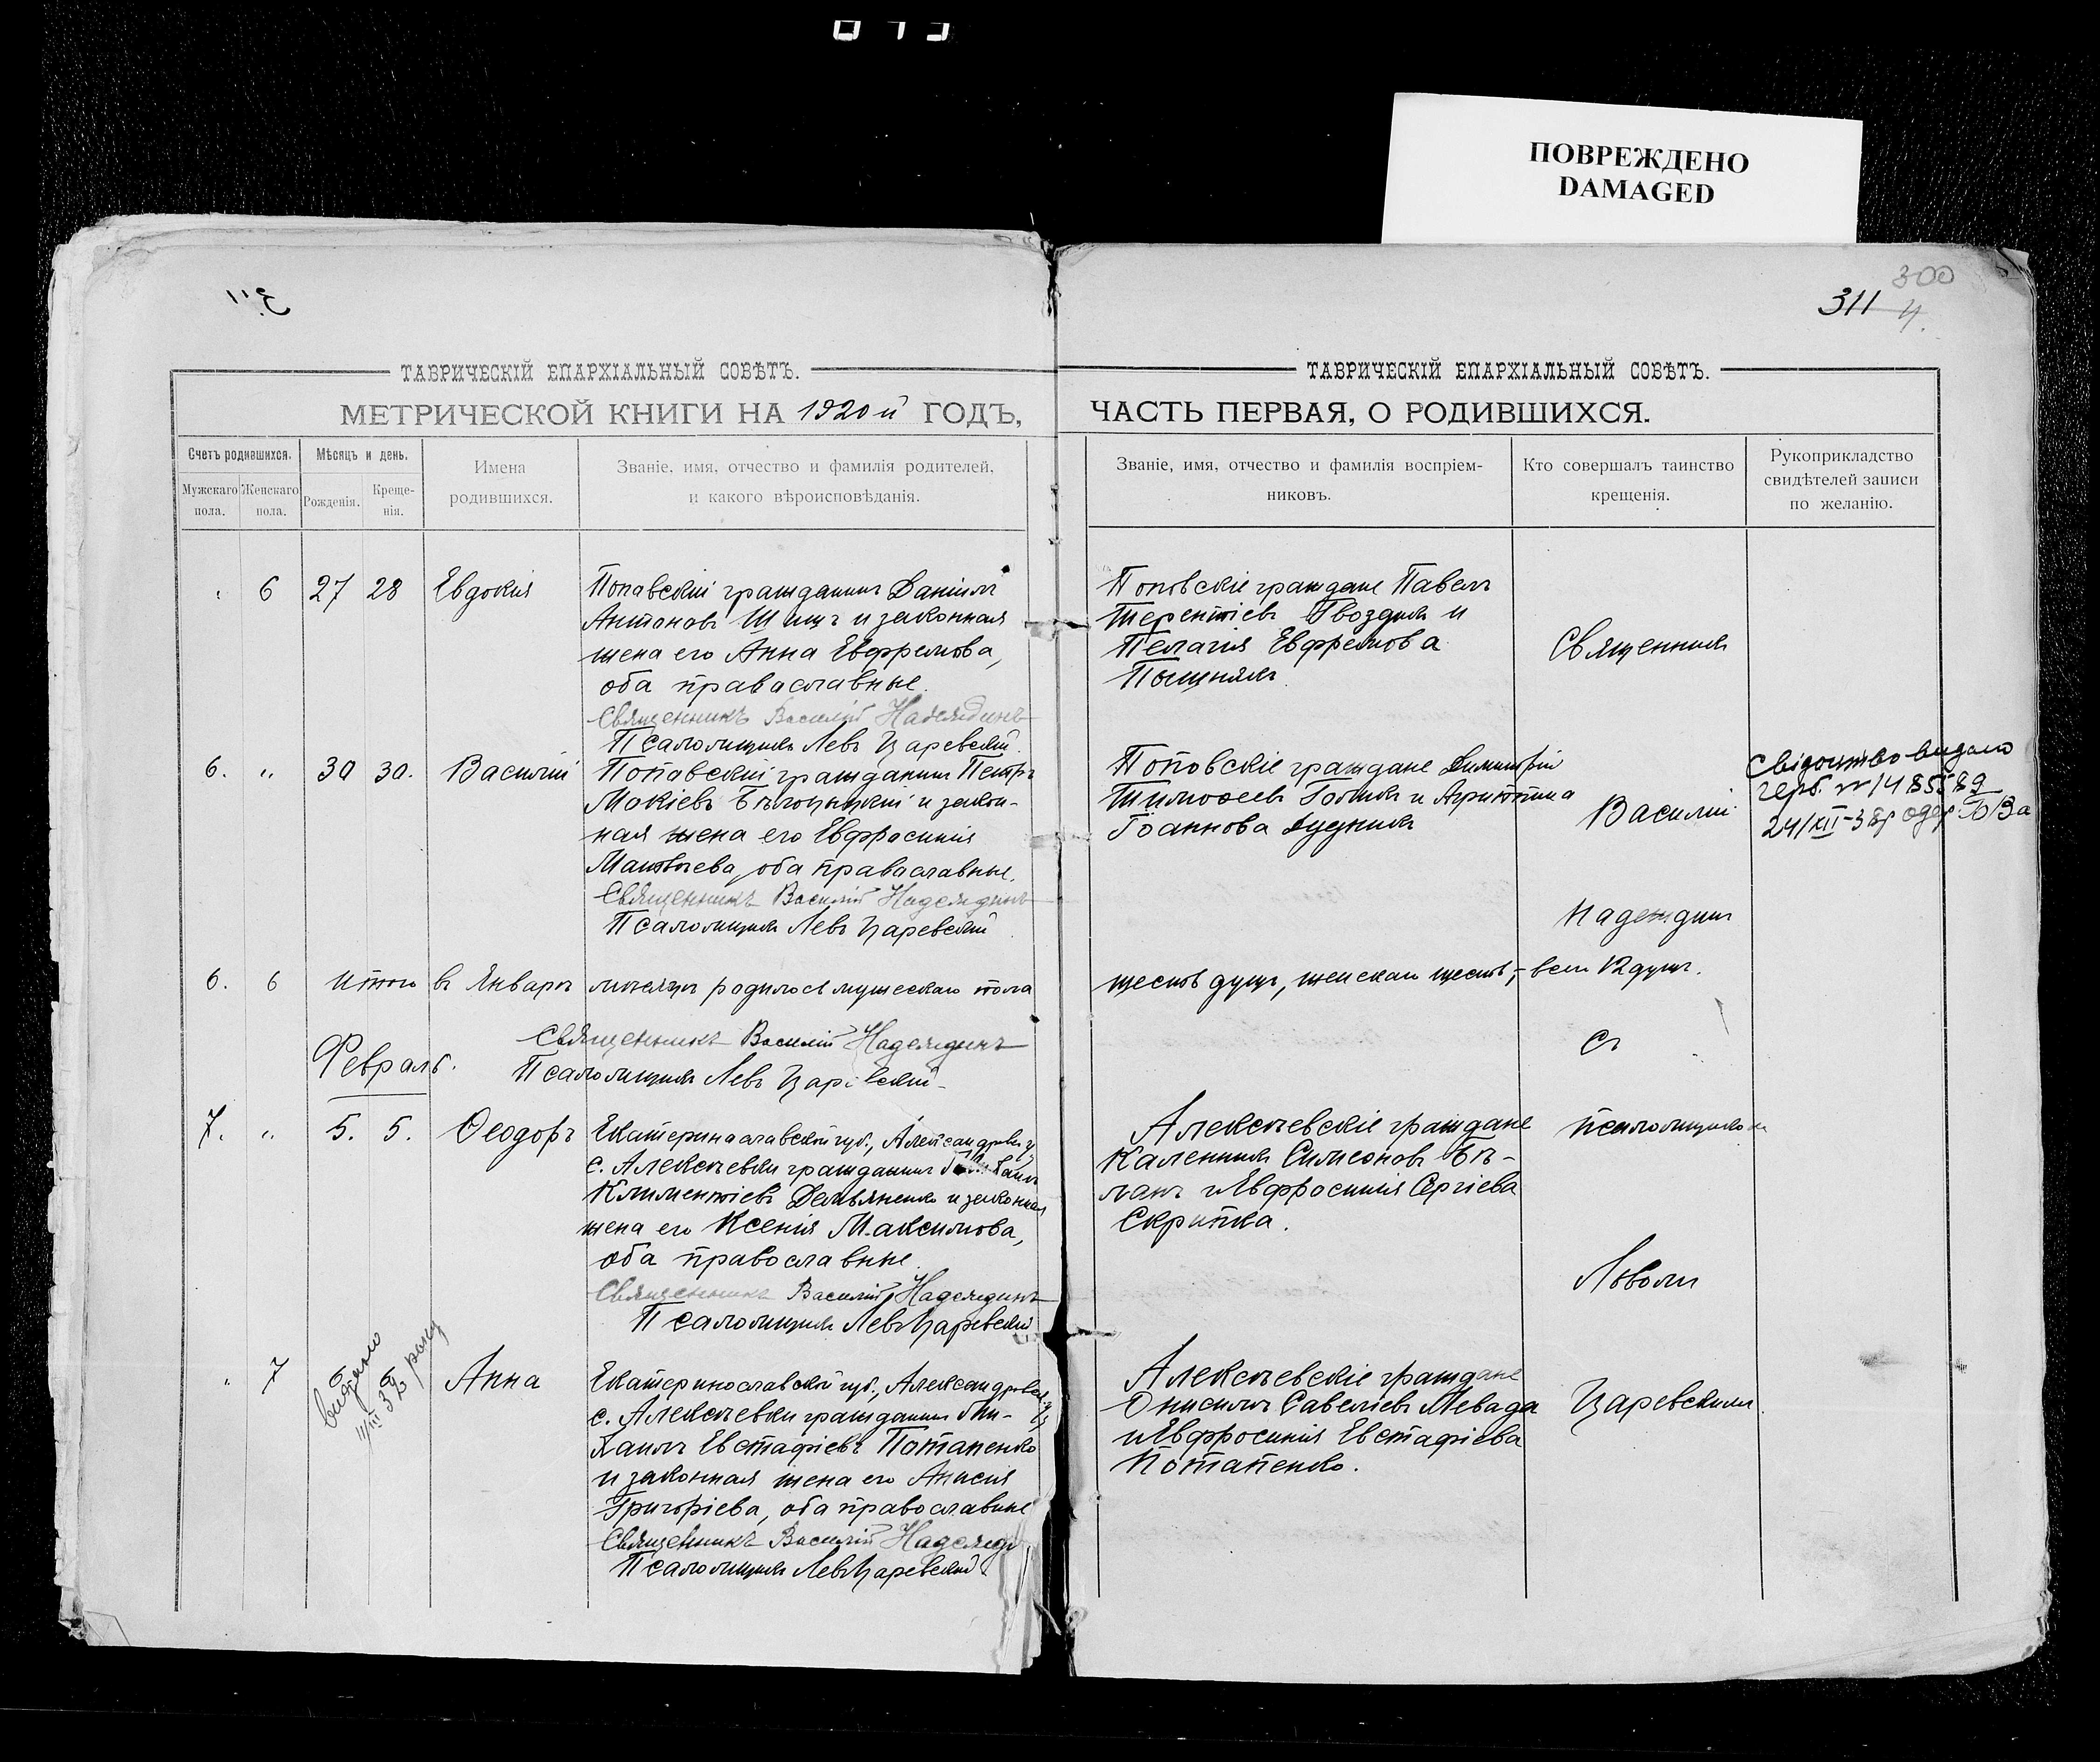 ПОВРЕЖДЕНО
DAMAGED
300
311
4.
ТАВРИЧЕСКІЙ ЕПАРХІАЛЬНЫЙ СОВѢТЪ.
МЕТРИЧЕСКОЙ КНИГИ НА 1920й ГОДЪ,
Счетъ родившихся.
Мужскаго пола.
Женскаго пола.
Мѣсяцъ и день.
Рожденія.
Креще-
нія.
Имена
родившихся.
Званіе, имя, отчество и фамилія родителей,
и какого вѣроисповѣданія.
ТАВРИЧЕСКІЙ ЕПАРХІАЛЬНЫЙ СОВѢТЪ.
ЧАСТЬ ПЕРВАЯ, О РОДИВШИХСЯ.
Званіе, имя, отчество и фамилія воспріем-
никовъ.
Кто совершалъ таинство
крещенія.
Рукоприкладство
свидѣтелей записи
по желанію.
" 6 27 28 Евдокія
Поповскій гражданинъ Даніилъ
Антоновъ и законная
жена его Анна Евфремова,
оба православные.
Священникъ Василій Надеждинъ
Псаломщикъ Левъ Царевскій.
Поповскіе граждане Павелъ
Терентіевъ Гвоздикъ и
Пелагія Евфремова
Священникъ
6. " 30 30. Василій
Поповскій гражданинъ Петръ
Мокіевъ и закон-
ная жена его Евфросинія
Матвѣева, оба православные.
Священникъ Василій Надеждинъ
Псаломщикъ Левъ Царевскій
Поповскіе граждане Димитрій
Тимоѳеевъ и Агриппина
Іоаннова Дудникъ
Василій
Свідоцтво видано
Надеждинъ
6. 6 Итого въ Январѣ мѣсяцѣ родилось мужескаго пола
шесть душъ, женскаго шесть, – всего 12 душъ.
Священникъ Василій Надеждинъ
Псаломщикъ Левъ Царевскій
Февраль.
съ
7. " 5. 5. Ѳеодоръ
Екатеринославской губ., Александров. у.
с. Алексѣевки гражданинъ
Климентіевъ Демьяненко и законная
жена его Ксенія Максимова,
оба православные.
Священникъ Василій Надеждинъ
Псаломщикъ Левъ Царевскій
Алексѣевскіе граждане
Каленикъ Симеоновъ Бѣ-
ланъ и Евфросинія Сергіева
Скрипка.
псаломщикомъ
Львомъ
" 7 6 6 Анна
видано
Екатеринославской губ., Александров. у.
с. Алексѣевки гражданинъ Ми-
хаилъ Евстафіевъ Потапенко
и законная жена его Анисія
Григоріева, оба православные
Священникъ Василій Надежди
Псаломщикъ Левъ Царевскій
Алексѣевскіе граждане
Онисимъ Савеліевъ Левада
и Евфросинія Евстафіева
Потапенко.
Царевскимъ.